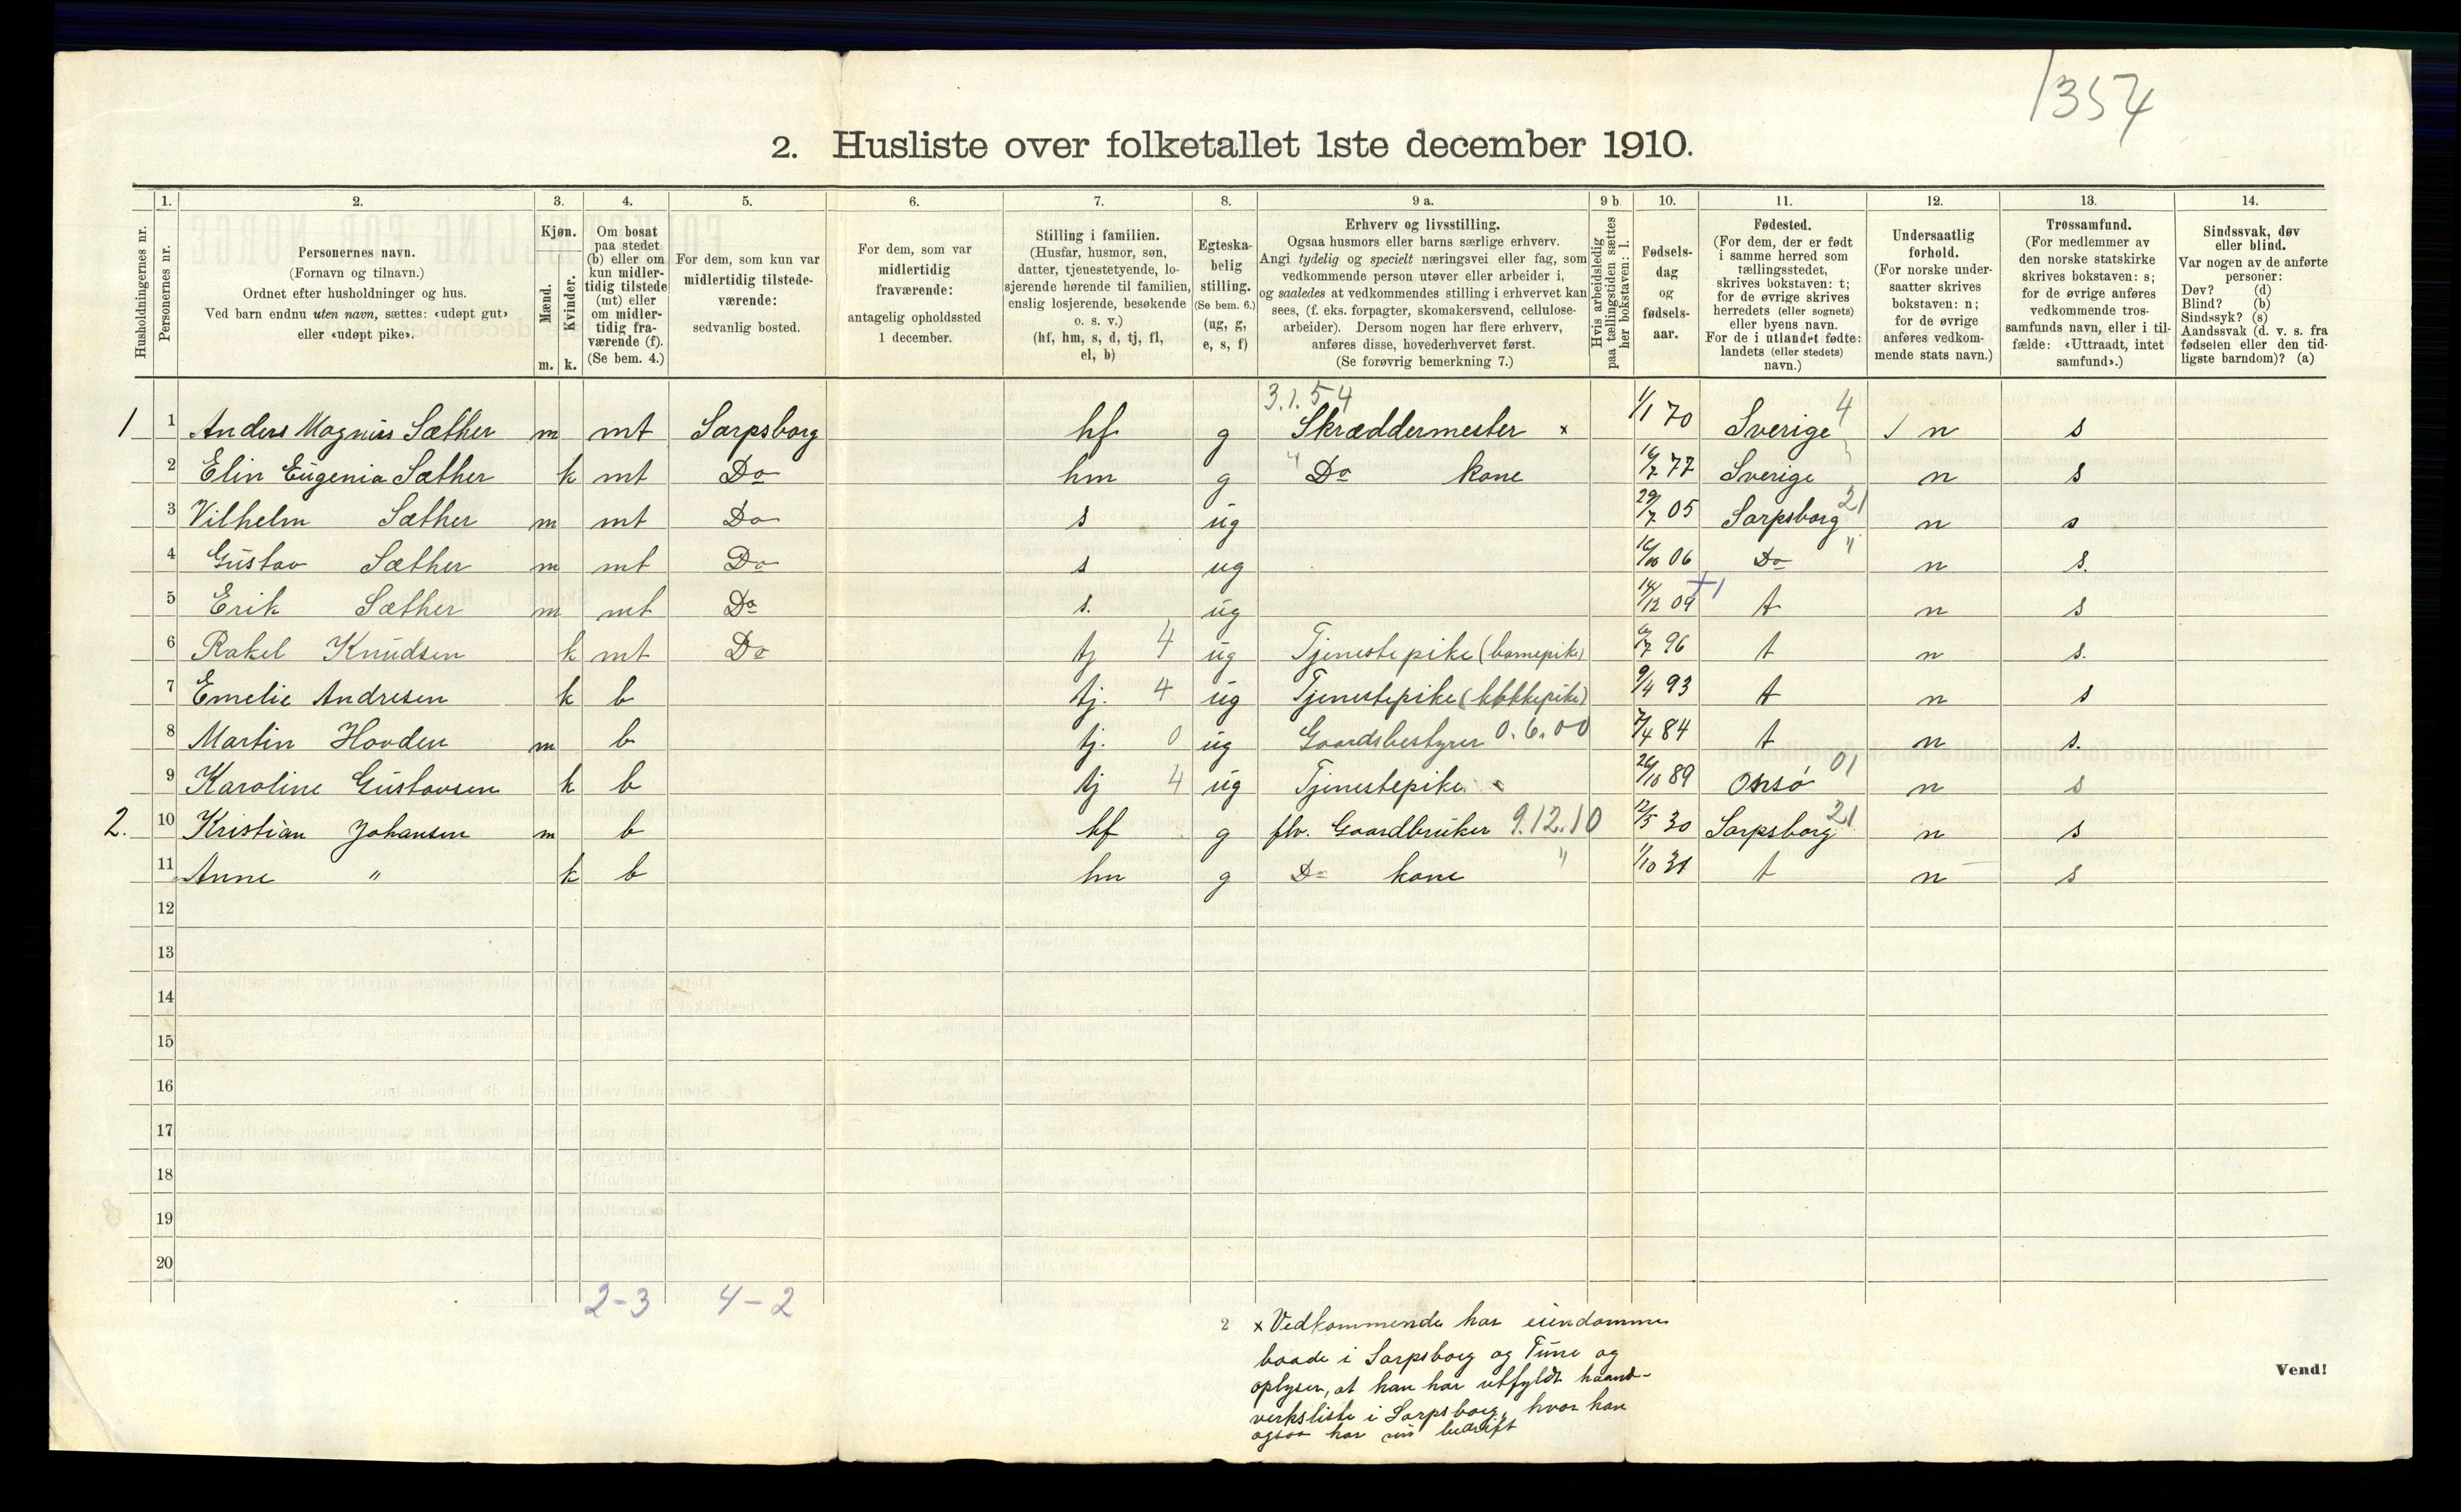 1354
2. Husliste over folketallet 1ste december 1910.
Husholdningernes nr.
1. Personernes nr.
2. Personernes navn. (Fornavn og tilnavn.) Ordnet efter husholdninger og hus. Ved barn endnu uten navn, sættes: «udøpt gut» eller «udøpt pike».
3. Kjøn. Mænd. m. Kvinder. k.
4. Om bosat paa stedet (b) eller om kun midlertidig tilstede (mt) eller om midlertidig fraværende (f). (Se bem. 4.)
5. For dem, som kun var midlertidig tilstedeværende: sedvanlig bosted.
6. For dem, som var midlertidig fraværende: antagelig opholdssted 1 december.
7. Stilling i familien. (Husfar, husmor, søn, datter, tjenestetyende, losjerende hørende til familien, enslig losjerende, besøkende o. s. v.) (hf, hm, s, d, tj, fl, el, b)
8. Egteskabelig stilling. (Se bem. 6.) (ug, g, e, s, f)
9 a. Erhverv og livsstilling. Ogsaa husmors eller barns særlige erhverv. Angi tydelig og specielt næringsvei eller fag, som vedkommende person utøver eller arbeider i, og saaledes at vedkommendes stilling i erhvervet kan sees, (f. eks. forpagter, skomakersvend, cellulosearbeider). Dersom nogen har flere erhverv, anføres disse, hovederhvervet først. (Se forøvrig bemerkning 7.)
9 b. Hvis arbeidsledig paa tællingstiden sættes her bokstaven: l.
10. Fødselsdag og fødselsaar.
11. Fødested. (For dem, der er født i samme herred som tællingsstedet, skrives bokstaven: t; for de øvrige skrives herredets (eller sognets) eller byens navn. For de i utlandet fødte: landets (eller stedets) navn.)
12. Undersaatlig forhold. (For norske undersaatter skrives bokstaven: n; for de øvrige anføres vedkommende stats navn.)
13. Trossamfund. (For medlemmer av den norske statskirke skrives bokstaven: s; for de øvrige anføres vedkommende trossamfunds navn, eller i tilfælde: «Uttraadt, intet samfund».)
14. Sindssvak, døv eller blind. Var nogen av de anførte personer: Døv? (d) Blind? (b) Sindssyk? (s) Aandssvak (d. v. s. fra fødselen eller den tidligste barndom)? (a)
3.1.54
1 1 Anders Magnus Sæther m mt Sarpsborg hf g Skræddermester x 1/1 70 Sverige 4 n s
2 Elin Eugenia Sæther k mt Do hm g " Do kone 16/7 77 Sverige n s
3 Vilhelm Sæther m mt Do s ug 29/7 05 Sarpsborg 21 n s
4 Gustav Sæther m mt Do s ug 16/10 06 Do " n s.
5 Erik Sæther m mt Do s. ug 14/12 09 +1 t n s
6 Rakel Knudsen k mt Do tj 4 ug Tjenestepike (barnepike) 6/7 96 t n s.
7 Emelie Andresen k b tj. 4 ug Tjenestepike (kokkepike) 9/4 93 t n s
8 Martin Hovden m b tj. 0 ug Gaardsbestyrer 0.6.00 7/4 84 t n s.
9 Karoline Gustavsen k b tj 4 ug Tjenestepike 26/10 89 Onsø 01 n s
2. 10 Kristian Johansen m b hf g flv. Gaardbruker 9.12.10 12/5 30 Sarpsborg 21 n s
11 Anne " k b hm g Do kone " 1/10 31 t n s
12
13
14
15
16
17
18
19
20
2-3 4-2
2 x Vedkommende har eiendomme
baade i Sarpsborg og Tune og
oplyser, at han har utfyldt haand-
verksliste i Sarpsborg, hvor han
ogsaa har sin bedrift
Vend!